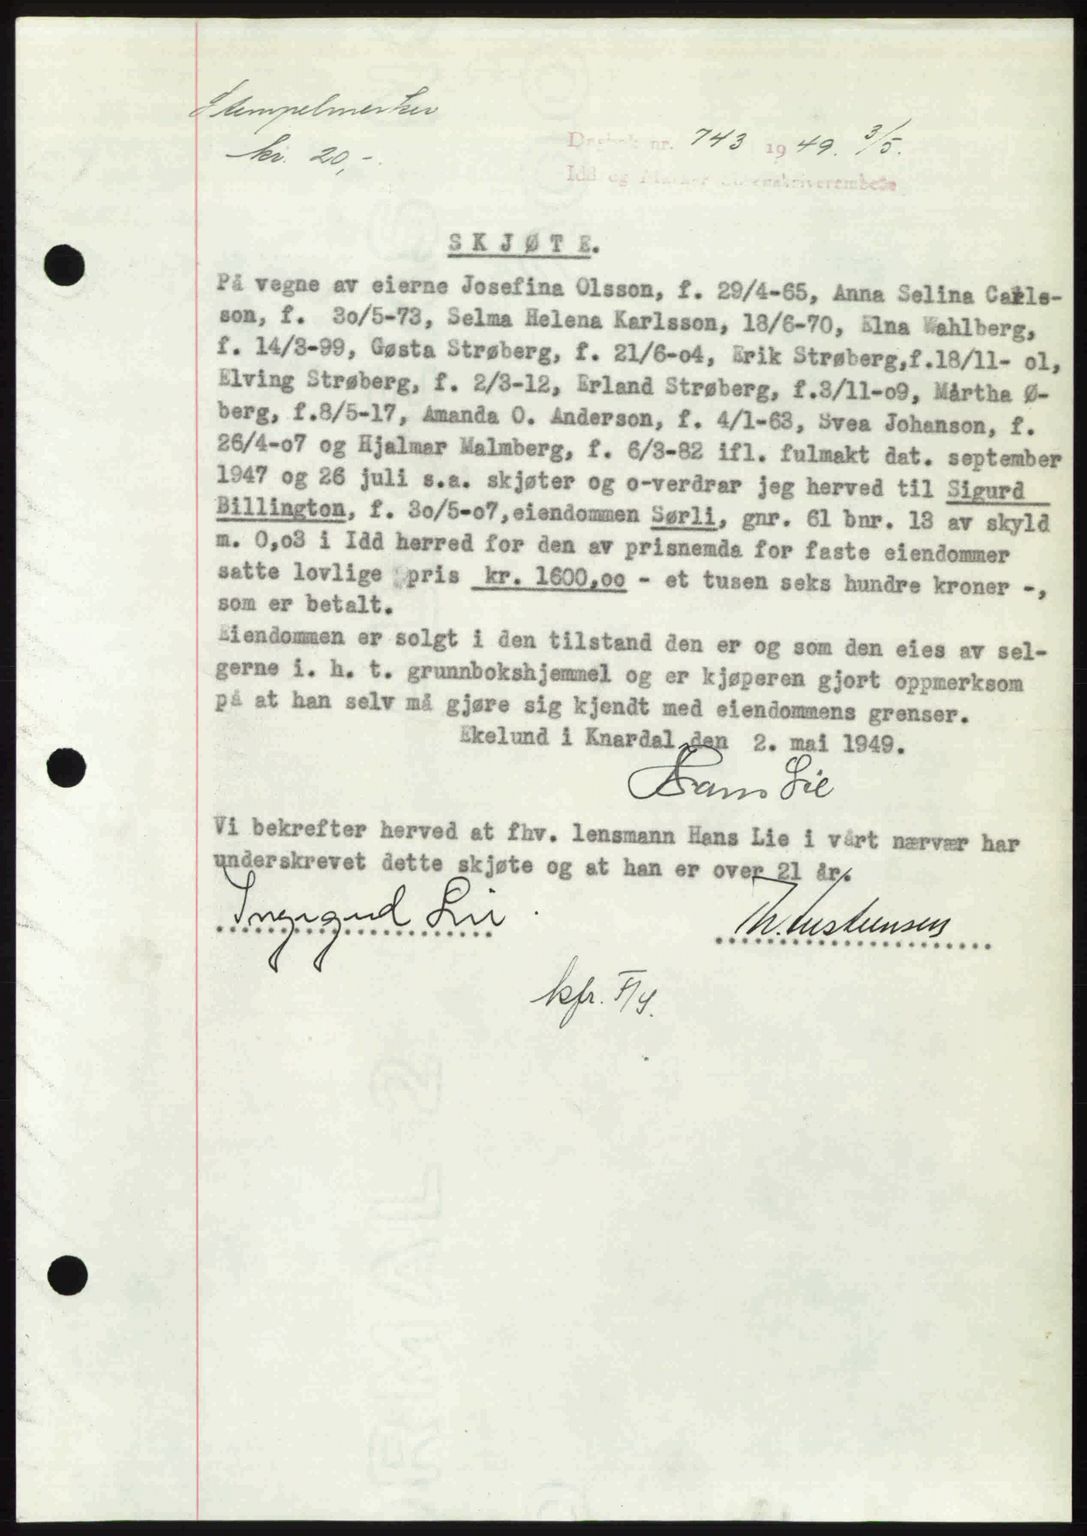 Stempelmerker
kr. 20,-.
Dagbok nr. 743 1949. 3/5.
Idd og Marker sorenskriverembede
SKJØTE.
På vegne av eierne Josefina Olsson, f. 29/4-65, Anna Selina Carls-
son, f. 3o/5-73, Selma Helena Karlsson, 18/6-70, Elna Wahlberg,
f. 14/3-99, Gøsta Strøberg, f. 21/6-o4, Erik Strøberg,f.18/11- o1,
Elving Strøberg, f. 2/3-12, Erland Strøberg, f.3/11-o9, Mårtha Ø-
berg, f.8/5-17, Amanda O. Anderson, f. 4/1-63, Svea Johanson, f.
26/4-o7 og Hjalmar Malmberg, f. 6/3-82 ifl. fulmakt dat. september
1947 og 26 juli s.a. skjøter og o-verdrar jeg herved til Sigurd
Billington, f. 3o/5-o7,eiendommen Sørli, gnr. 61 bnr. 13 av skyld
m. 0,o3 i Idd herred for den av prisnemda for faste eiendommer
satte lovlige pris kr. 1600,oo - et tusen seks hundre kroner -,
som er betalt.
Eiendommen er solgt i den tilstand den er og som den eies av sel-
gerne i. h. t. grunnbokshjemmel og er kjøperen gjort oppmerksom
på at han selv må gjøre sig kjendt med eiendommens grenser.
Ekelund i Knardal den 2. mai 1949.
Hans Lie
Vi bekrefter herved at fhv. lensmann Hans Lie i vårt nærvær har
underskrevet dette skjøte og at han er over 21 år.
Ingigerd Lie
kfr.